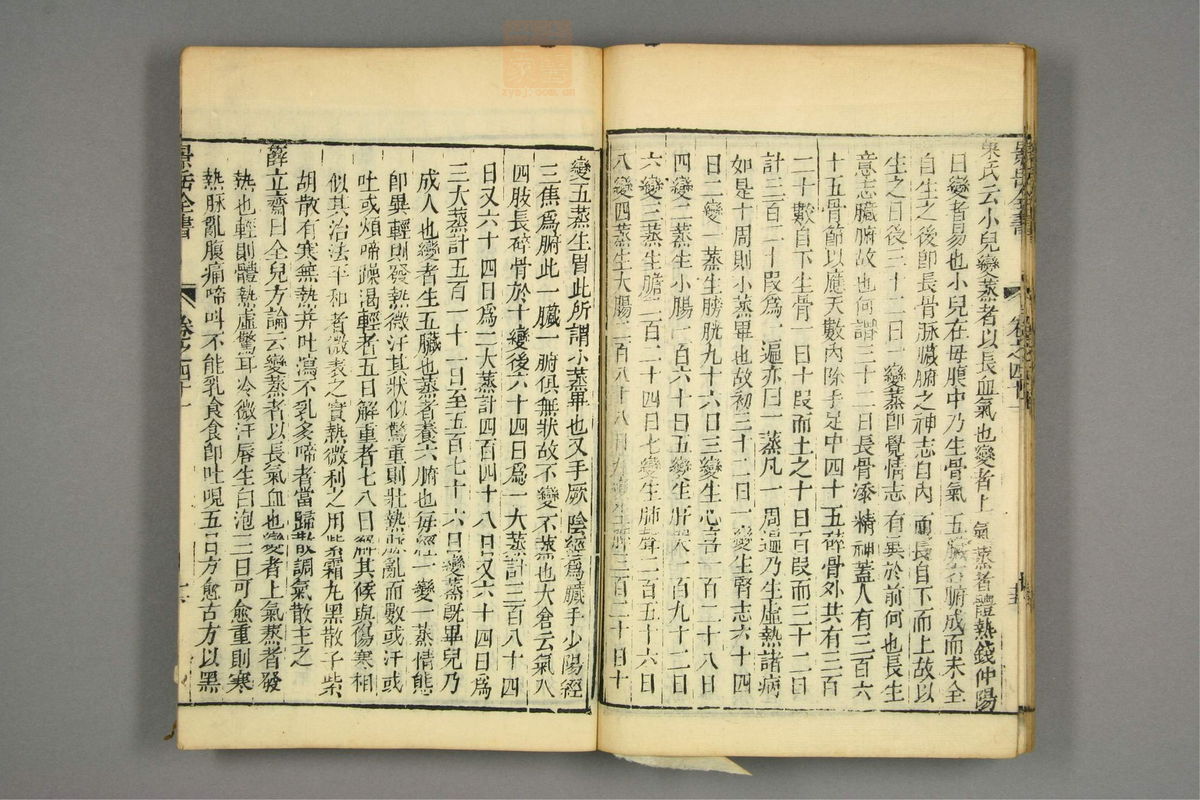 巢氏云小兒變蒸者以長血氣也變者上氣蒸者體熱錢仲陽
曰變者易也小兒在母腹中乃生骨氣五臟六腑成而未全
自生之後即長骨脉臟腑之神志自內而長自下而上故以
生之日後三十二日一變蒸即覺情志有異於前何也長生
意志臟腑故也何謂三十二日長骨添精神蓋人有三百六
十五骨節以應天數內除手足中四十五碎骨外共有三百
二十數自下生骨一日十段而上之十日百段而三十二日
計三百二十段爲一遍亦曰一蒸凡一周遍乃生虛熱諸病
如是十周則小蒸畢也故初三十二日一變生腎志六十四
日二變一蒸生膀胱九十六日三變生心喜一百二十八日
四變二蒸生小腸一百六十日五變生肝哭一百九十二日
六變三蒸生膽二百二十四日七變生肺聲二百五十六日
八變四蒸生大腸二百八十八日九變生脾三百二十日十
變五蒸生胃此所謂小蒸畢也又手厥陰經爲臟手少陽經
三焦爲腑此一臟一腑俱無狀故不變不蒸也大倉云氣入
四肢長碎骨於十變後六十四日爲一大蒸計三百八十四
日又六十四日爲二大蒸計四百四十八日又六十四日爲
三大蒸計五百一十二日至五百七十六日變蒸既畢兒乃
成人也變者生五臟也蒸者養六腑也每經一變一蒸情態
即異輕則發熱微汗其狀似驚重則壯熱脉亂而數或汗或
吐或煩啼躁渴輕者五日解重者七八日解其候與傷寒相
似其治法平和者微表之實熱微利之用紫霜丸黑散子紫
胡散有寒無熱并吐瀉不乳多啼者當歸散調氣散主之
薛立齋曰全兒方論云變蒸者以長氣血也變者上氣蒸者發
熱也輕則體熱虛驚耳冷微汗唇生白泡三日可愈重則寒
熱脉亂腹痛啼叫不能乳食食即吐哯五日方愈古方以黑
景岳全書
卷之四十一